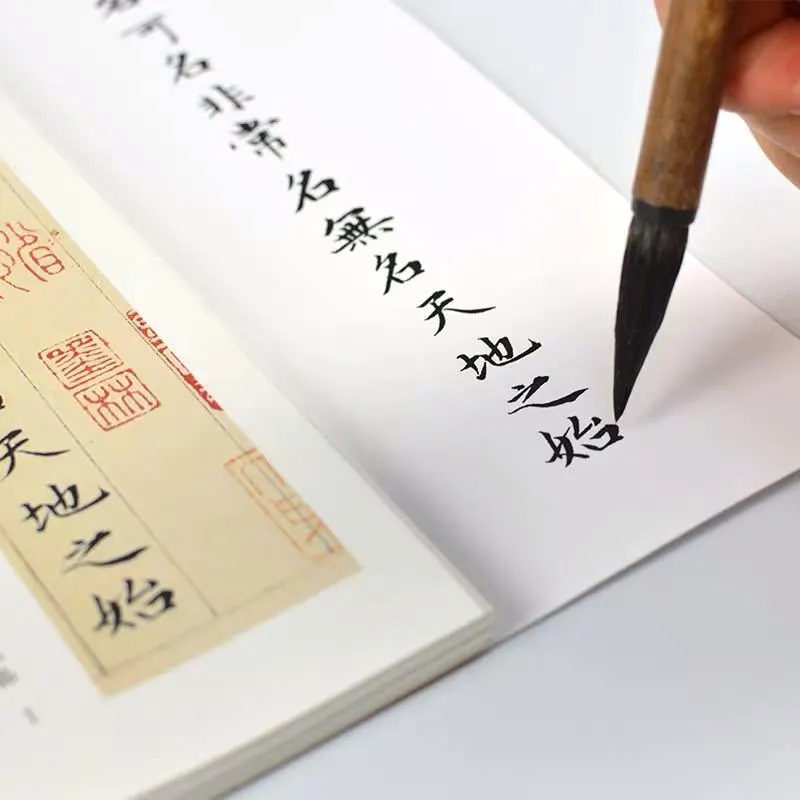 名可名非常名無名天地之始
天地之始
墨林